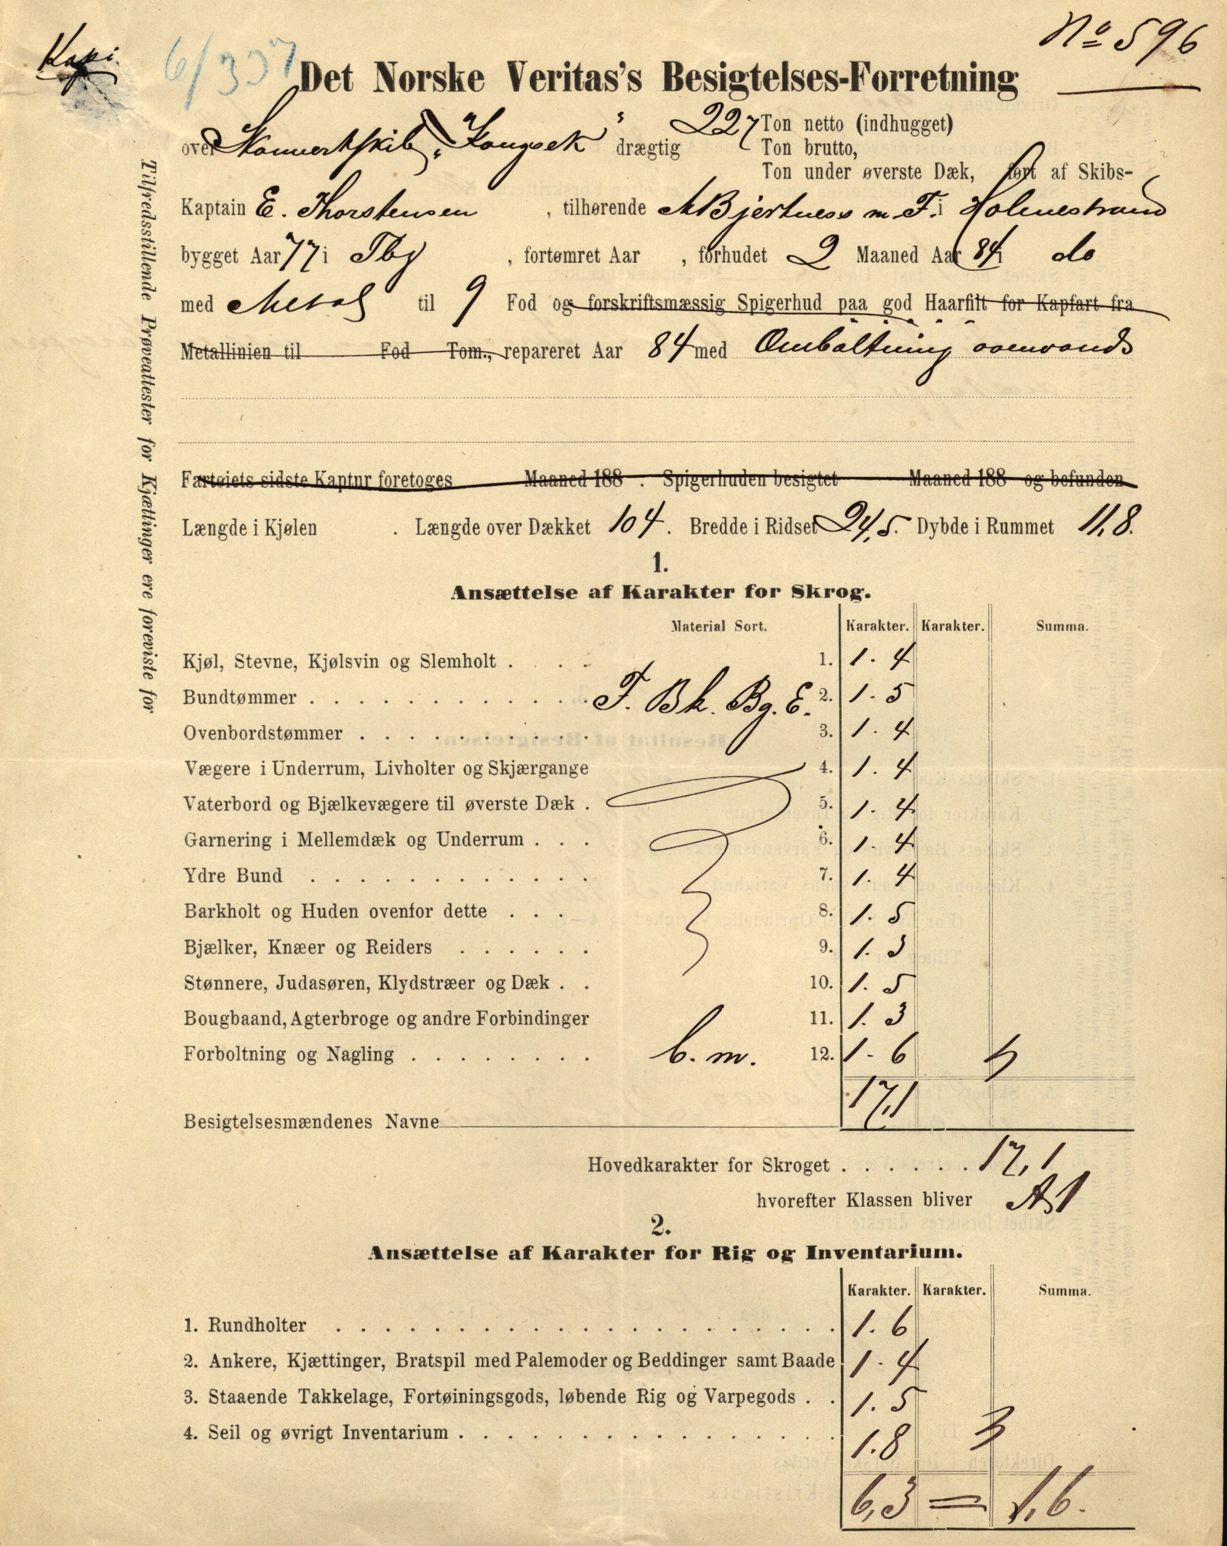 Kopi.
6/337
No 596
Det Norske Veritas's Besigtelses-Forretning
over Skonnertskib „Kongsek" drægtig 227 Ton netto (indhugget)
Ton brutto,
Ton under øverste Dæk, ført af Skibs-
Kaptain E. Thorstensen , tilhørende A Bjertness m. F. i Holmestrand
bygget Aar 77 i Tbg , fortømret Aar , forhudet 2 Maaned Aar 84 i do
med Metal til 9 Fod og forskriftsmæssig Spigerhud paa god Haarfilt for Kapfart fra
Metallinien til Fod Tom., repareret Aar 84 med Omboltning ovenvands
Fartøiets sidste Kaptur foretoges Maaned 188 . Spigerhuden besigtet Maaned 188 og befunden
Længde i Kjølen . Længde over Dækket 104 . Bredde i Ridset 24,5. Dybde i Rummet 11,8.
1.
Ansættelse af Karakter for Skrog.
Material Sort. Karakter. Karakter. Summa.
Kjøl, Stevne, Kjølsvin og Slemholt . . . . 1. 1. 4
Bundtømmer . . . . . . . . . . . . F. Bk. Bg. E. 2. 1. 5
Ovenbordstømmer . . . . . . . . . . 3. 1. 4
Vægere i Underrum, Livholter og Skjærgange 4. 1. 4
Vaterbord og Bjælkevægere til øverste Dæk . 5. 1. 4
Garnering i Mellemdæk og Underrum . . . 6. 1. 4
Ydre Bund . . . . . . . . . . . . 7. 1. 4
Barkholt og Huden ovenfor dette . . . 8. 1. 5
Bjælker, Knæer og Reiders . . . . . . 9. 1. 3
Stønnere, Judasøren, Klydstræer og Dæk . . 10. 1. 5
Bougbaand, Agterbroge og andre Forbindinger 11. 1. 3
Forboltning og Nagling . . . . . . . . b. m. 12. 1. 6
17,1
Besigtelsesmændenes Navne
Hovedkarakter for Skroget . . . . . . 17,1
hvorefter Klassen bliver A1
2.
Ansættelse af Karakter for Rig og Inventarium.
Karakter. Karakter. Summa.
1. Rundholter . . . . . . . . . . . . . . . . . . . . 1. 6
2. Ankere, Kjættinger, Bratspil med Palemoder og Beddinger samt Baade 1. 4
3. Staaende Takkelage, Fortøiningsgods, løbende Rig og Varpegods . . 1. 5
4. Seil og øvrigt Inventarium . . . . . . . . . . . . . . . . 1. 8
6,3 = 1,6.
Tilfredsstillende Prøveattester for Kjættinger ere foreviste for